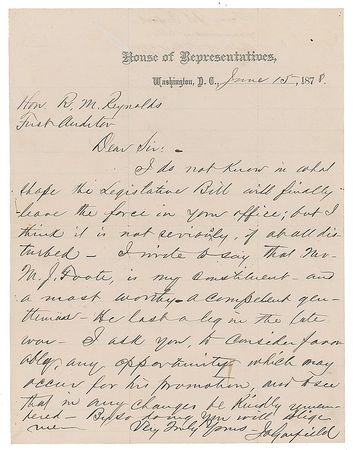 House of Representatives,
Washington, D. C., June 15, 1878.
Hon. R. M. Reynolds
First Auditor
Dear Sir:
I do not know in what
shape the Legislative Bill will finally
leave the force in your office; but I
think it is not seriously, if at all dis-
turbed - I write to say that Mr.
M. J. Foote, is my constituent - and
a most worthy & competent gen-
tleman - He lost a leg in the late
war - I ask you, to consider favor
ably, any opportunity which may
occur for his promotion, and to see
that in any changes he kindly remem-
bered - By so doing you will oblige
me - Very Truly Yours - J A Garfield